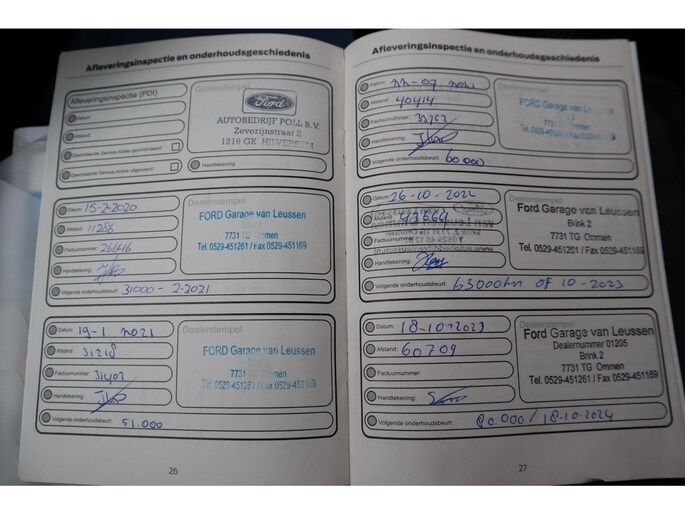 Afleveringsinspectie en onderhoudsgeschiedenis
Afleveringsinspectie (PDI)
Datum:
Afstand:
Openstaande Service Acties gecontroleerd:
Openstaande Service Acties uitgevoerd:
Dealerstempel
Ford
AUTOBEDRIJF POLL B.V.
Zeverijnstraat 2
1216 GK HILVERSUM
Handtekening:
Datum: 15-2-2020
Afstand: 11286
Factuurnummer:
Handtekening:
Volgende onderhoudsbeurt: 31000 - 2-2021
Dealerstempel
FORD Garage van Leussen
Brink 2
7731 TG Ommen
Tel. 0529-451261 / Fax 0529-451169
Datum: 19-1-2021
Afstand: 31218
Factuurnummer: 31402
Handtekening:
Volgende onderhoudsbeurt: 51.000
Dealerstempel
FORD Garage van Leussen
Brink 2
7731 TG Ommen
Tel. 0529-451261 / Fax 0529-451169
26
Afleveringsinspectie en onderhoudsgeschiedenis
Datum:
Afstand: 40414
Factuurnummer:
Handtekening:
Volgende onderhoudsbeurt: 60000
Dealerstempel
FORD Garage van Leussen
7731 TG Ommen
Datum: 26-10-2022
Afstand:
Factuurnummer:
Handtekening:
Volgende onderhoudsbeurt: 63000km OF 10-2023
Ford Garage van Leussen
Brink 2
7731 TG Ommen
Tel. 0529-451261 / Fax 0529-451169
Datum: 18-10-2023
Afstand: 60709
Factuurnummer:
Handtekening:
Volgende onderhoudsbeurt: 80.000 / 18-10-2024
Dealerstempel
Ford Garage van Leussen
Dealernummer 01205
Brink 2
7731 TG Ommen
Tel. 0529-451261 / Fax 0529-451169
27